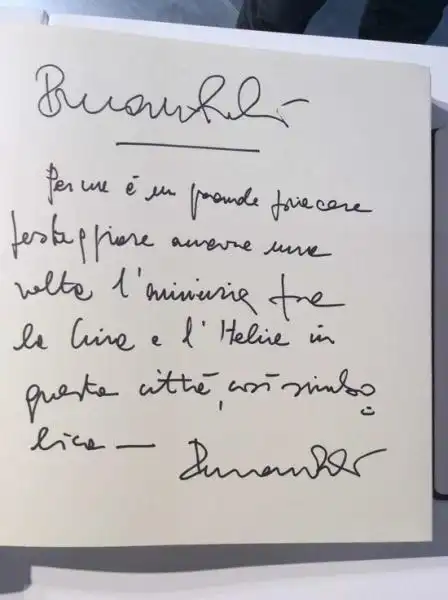 Per me è un grande piacere
festeggiare ancora una
volta l'amicizia fra
la Cina e l'Italia in
questa città, così simbo
lica —